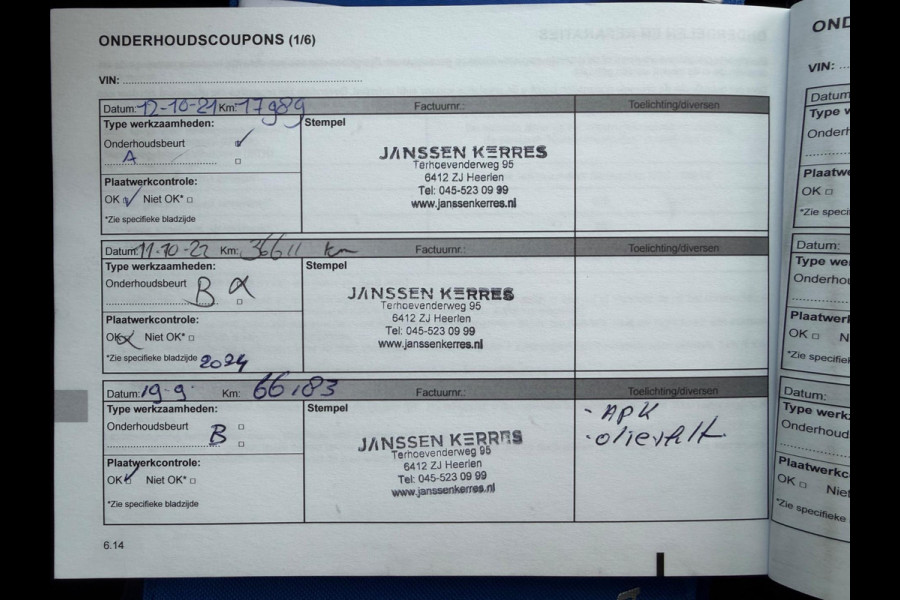 ONDERHOUDSCOUPONS (1/6)
VIN:
Datum: 12-10-21 Km: 17989 Factuurnr.: Toelichting/diversen
Type werkzaamheden: Stempel
Onderhoudsbeurt
A
Plaatwerkcontrole:
OK Niet OK*
*Zie specifieke bladzijde
JANSSEN KERRES
Terhoevenderweg 95
6412 ZJ Heerlen
Tel: 045-523 09 99
www.janssenkerres.nl
Datum: 11-10-22 Km: 36611 km Factuurnr.: Toelichting/diversen
Type werkzaamheden: Stempel
Onderhoudsbeurt B
Plaatwerkcontrole:
OK Niet OK*
*Zie specifieke bladzijde
JANSSEN KERRES
Terhoevenderweg 95
6412 ZJ Heerlen
Tel: 045-523 09 99
www.janssenkerres.nl
2024
Datum: 19-9- Km: 66183 Factuurnr.: Toelichting/diversen
Type werkzaamheden: Stempel
Onderhoudsbeurt
B
Plaatwerkcontrole:
OK Niet OK*
*Zie specifieke bladzijde
JANSSEN KERRES
Terhoevenderweg 95
6412 ZJ Heerlen
Tel: 045-523 09 99
www.janssenkerres.nl
- APK
6.14
OND
VIN:
Datum
Type w
Onderh
Plaatwe
OK
*Zie speci
Datum:
Type we
Onderho
Plaatwerk
OK N
*Zie specifie
Datum:
Type werk
Onderhoud
Plaatwerkc
OK Nie
*Zie specifieke